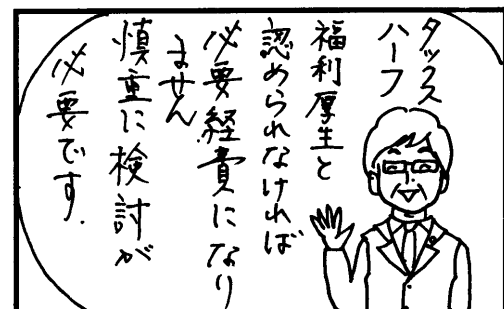 タックス
ハーフ
福利厚生と
認められなければ
必要経費になり
ません
慎重に検討が
必要です.